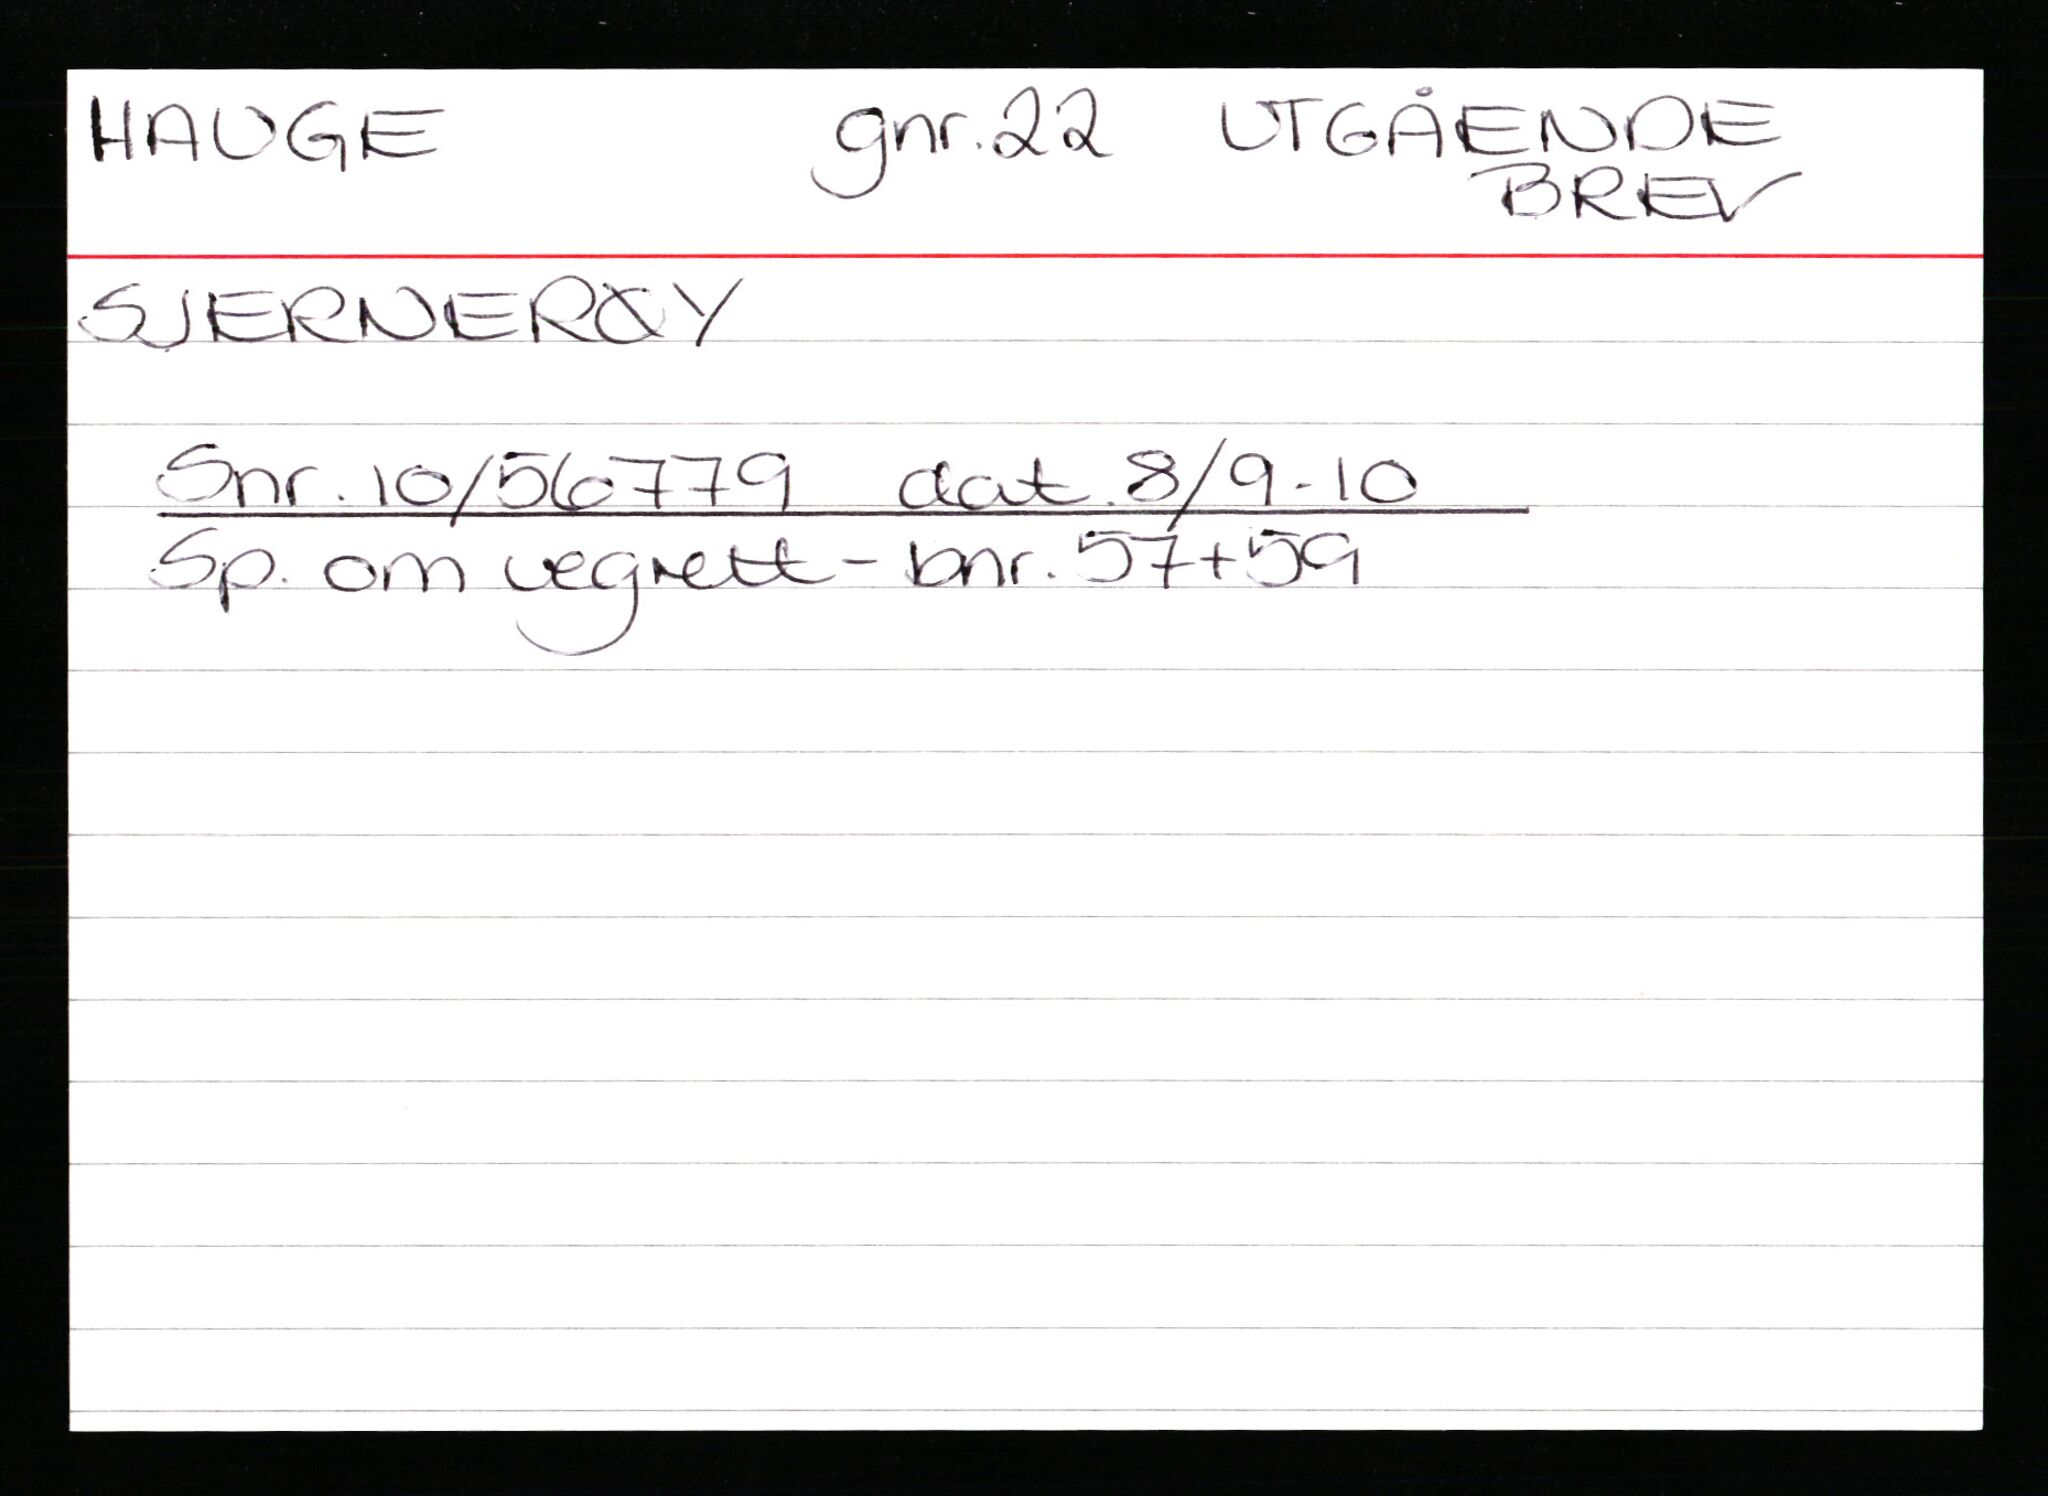 HAUGE gnr. 22 UTGÅENDE
BREV
SJERNERØY
Snr. 10/56779 dat. 8/9-10
Sp. om vegrett - bnr. 57+59